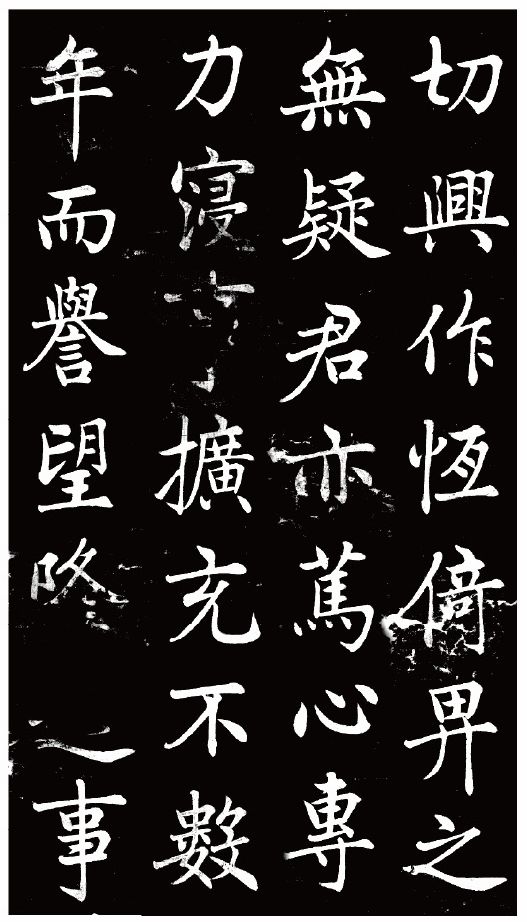 切興作恆倚畀之
無疑君亦篤心專
力寢擴充不數
年而譽望隆事